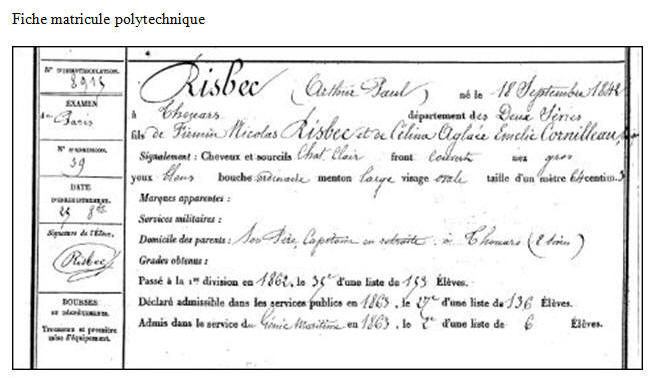 Fiche matricule polytechnique
N° D'IMMATRICULATION.
8915
EXAMEN
de Paris
N° D'ADMISSION.
39
DATE
D'ENREGISTREMENT.
29 8bre
Signature de l'Élève.
Risbec
BOURSES
ET DÉGRÈVEMENTS.
Trousseau et première
mise d'équipement.
Risbec (Arthur Paul) né le 18 Septembre 1842
à Thouars département des Deux Sèvres
fils de Firmin Nicolas Risbec et de Célina Aglaée Emelie Cornilleau,
Signalement : Cheveux et sourcils Chat. Clair front couvert nez gros
yeux bleus bouche ordinaire menton large visage ovale taille d'un mètre 64 centim. 3
Marques apparentes :
Services militaires :
Domicile des parents : Son Père, Capitaine en retraite à Thouars (2 Sèvres)
Grades obtenus :
Passé à la 1re division en 1862, le 35e d'une liste de 153 Élèves.
Déclaré admissible dans les services publics en 1863, le 27e d'une liste de 136 Élèves.
Admis dans le service du Génie Maritime en 1863, le 2e d'une liste de 6 Élèves.